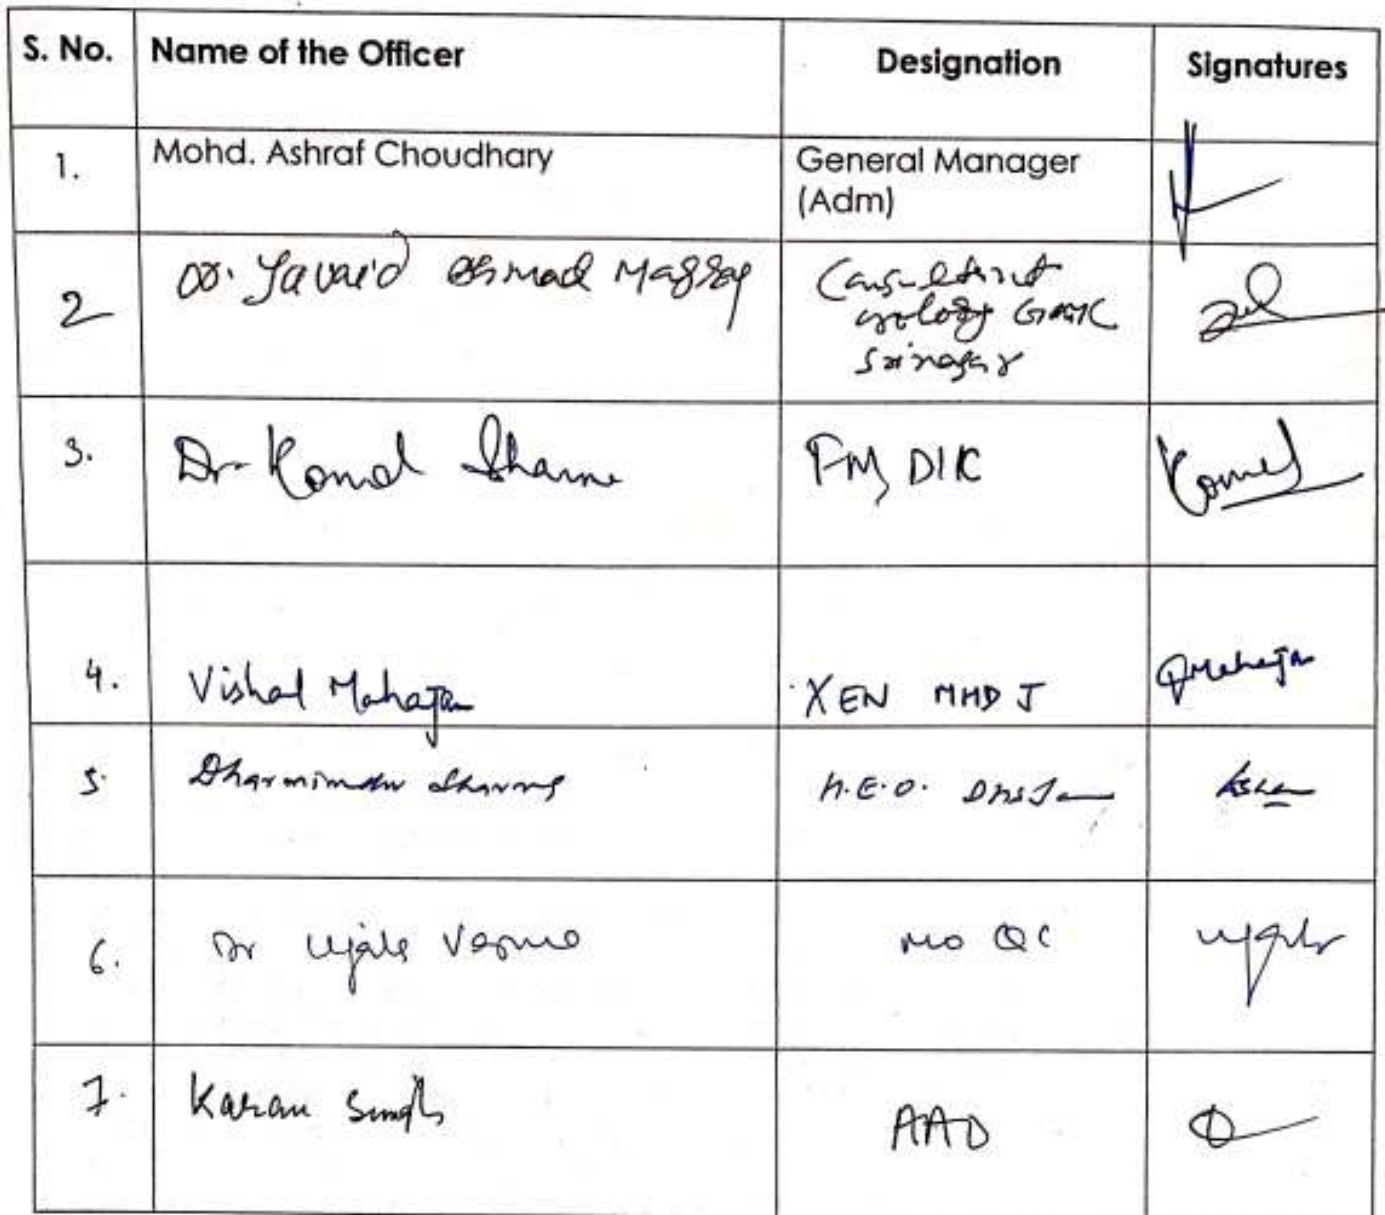 S. No. Name of the Officer Designation Signatures
1. Mohd. Ashraf Choudhary General Manager
(Adm)
2 Dr. Javaid Ahmad Magray Consultant
urology GMC
Srinagar
3. Dr. Komal Sharma FM, DIC Komal
4. Vishal Mahajan XEN MHD J Mahajan
5. Dharminder Sharma H.E.O.
6. Dr Ujala Verma MO QC Ujala
7. Karan Singh AAO